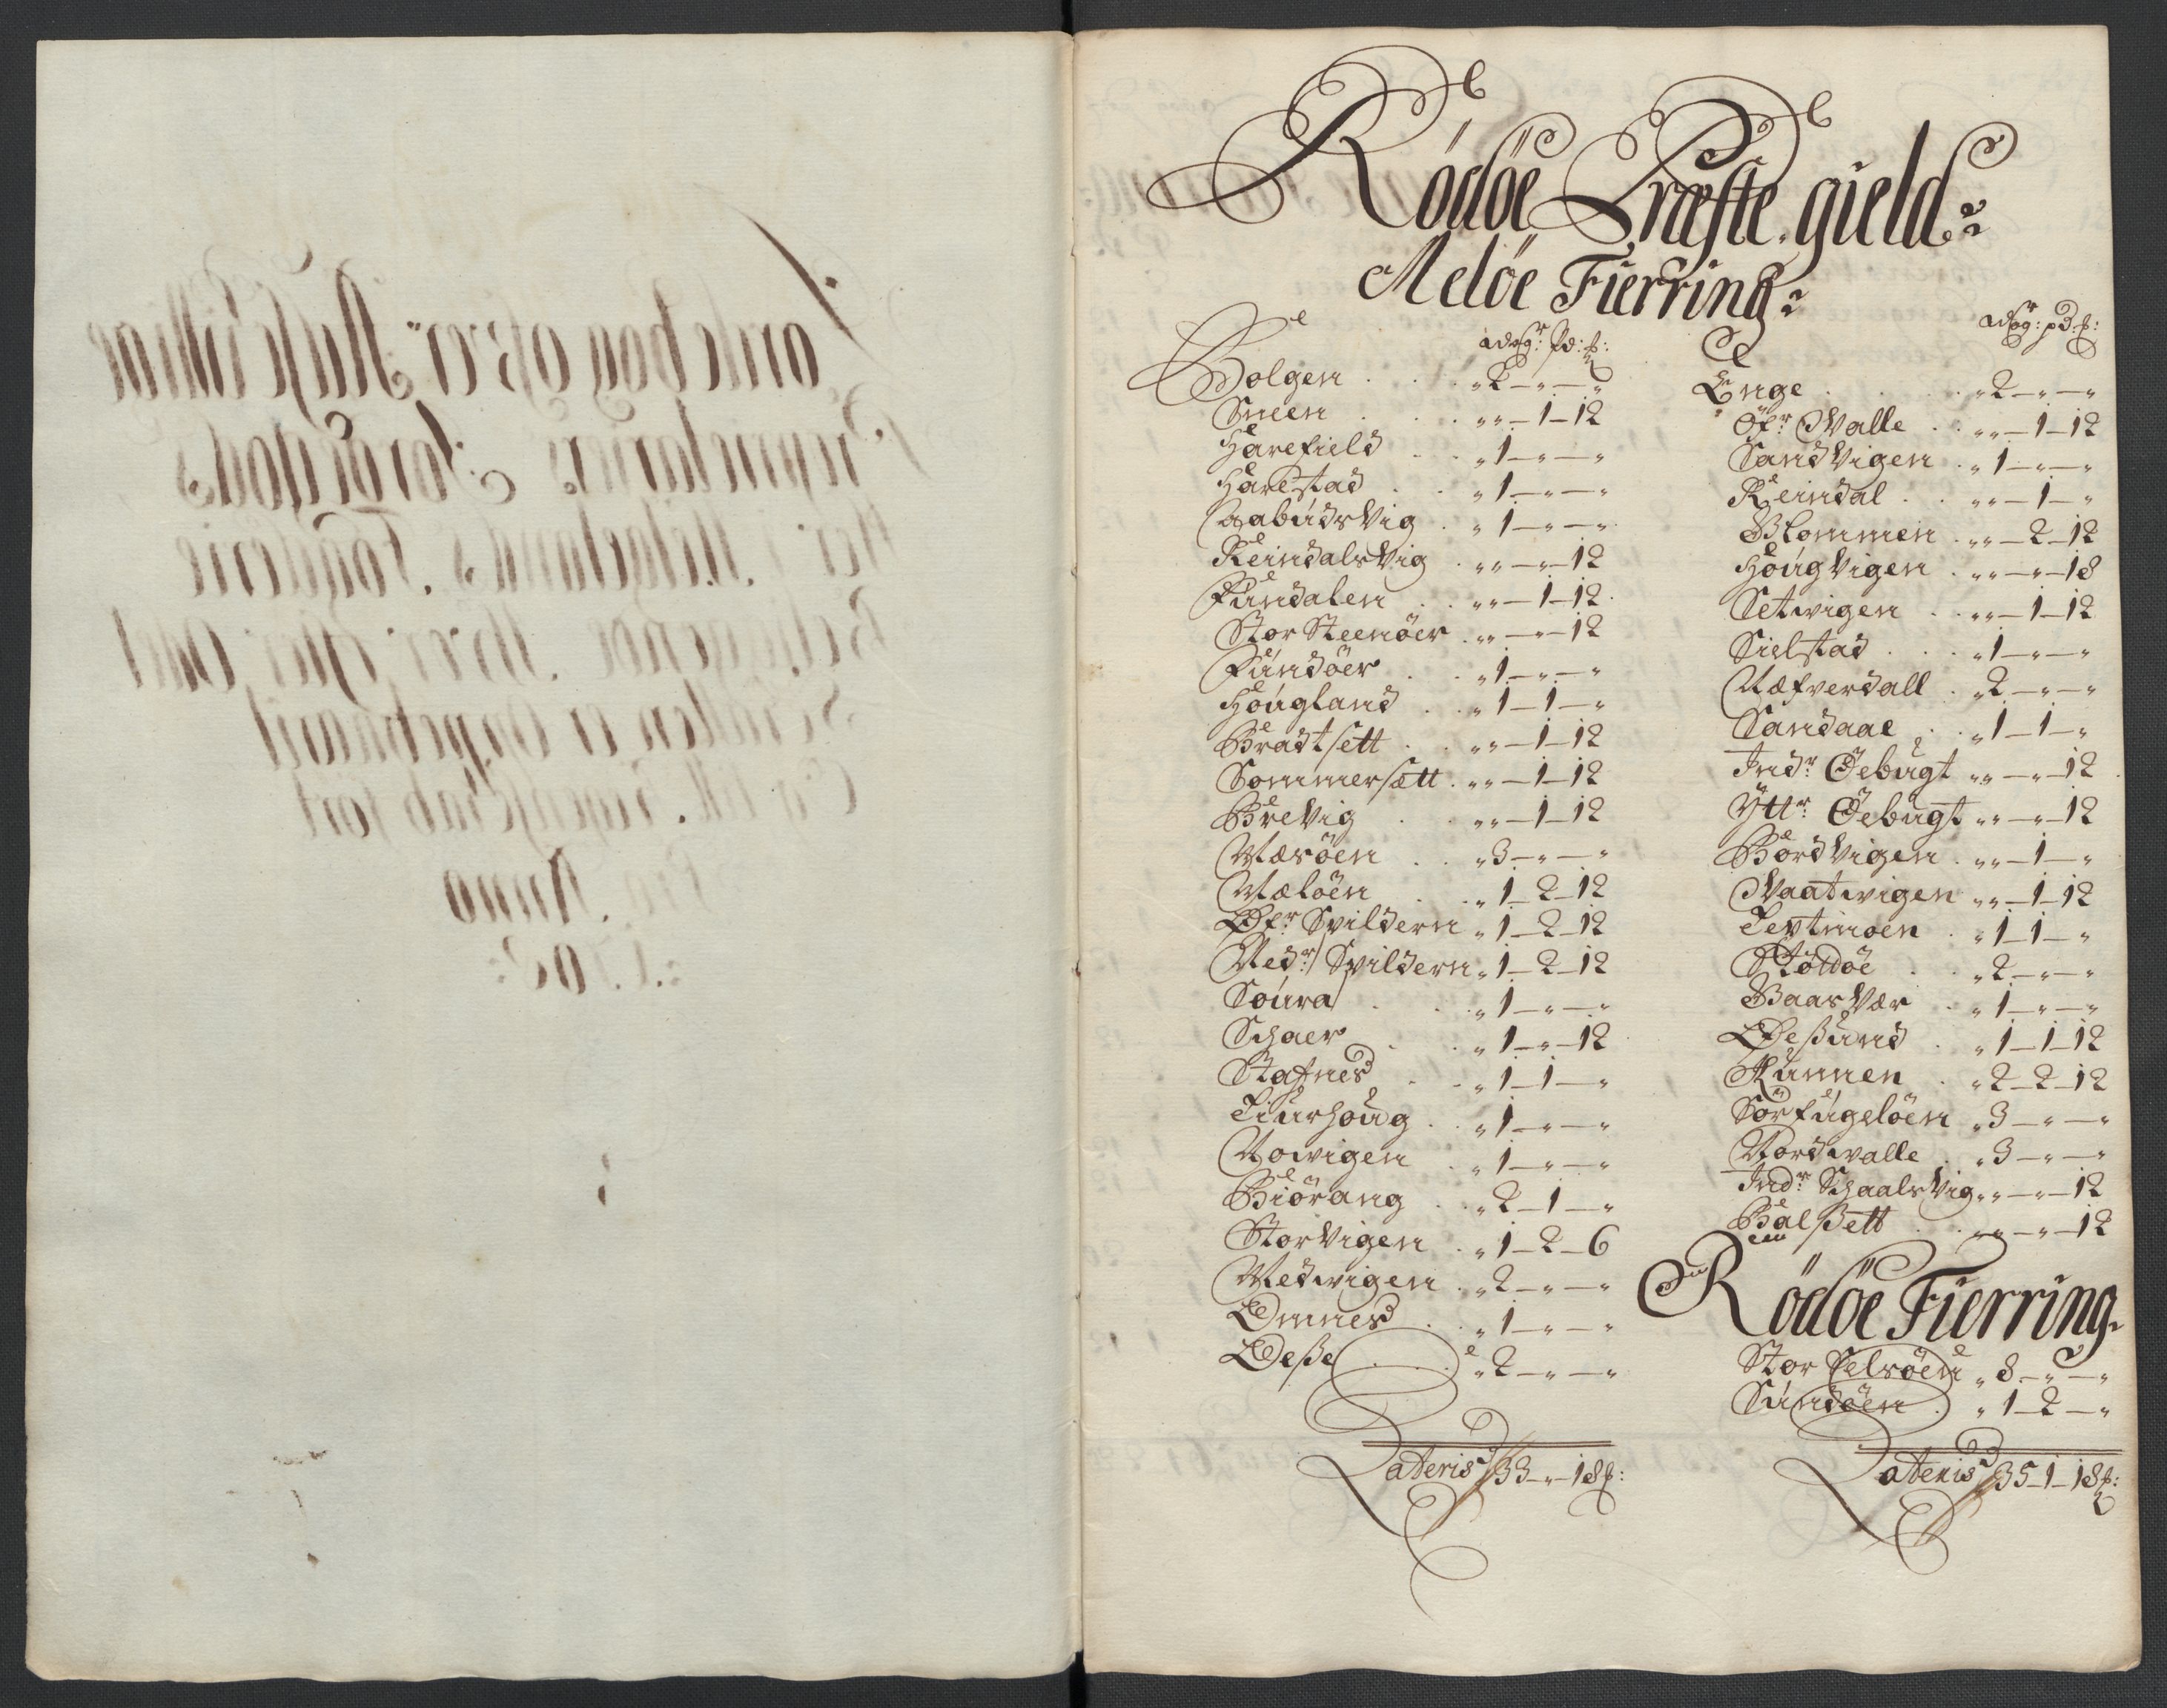 Rödöe Præste gield:
Melöe Fierring:
wog: pd: ℔:
Bolgen . . „ 2 — „ — „
Sneen . . „ „ — 1 — 12
Harefield . . „ 1 — „ — „
Harestad . . „ 1 — „ — „
Aabudsvig . „ 1 — „ — „
Reindalsvig . „ „ — „ — 12
Fundalen . . „ „ — 1 — 12
Stor Steenöer . „ „ — „ — 12
Fundöer . . „ 1 — „ — „
Hougland . . „ 1 — 1 — „
Bradtsett . . „ „ — 1 — 12
Sommersætt . „ „ — 1 — 12
Brevig . . „ „ — 1 — 12
Mesöen . . „ 3 — „ — „
Mæløen . . „ 1 — 2 — 12
Öfr: Svildern „ 1 — 2 — 12
Nedr: Svildern „ 1 — 2 — 12
Soura . . „ 1 — „ — „
Schaer . . „ 1 — „ — 12
Stafnes . . „ 1 — 1 — „
Tiurhoug . . „ 1 — „ — „
Novigen . . „ 1 — „ — „
Biörang . . „ 2 — 1 — „
Storvigen . . „ 1 — 2 — 6
Medwigen . . „ 2 — „ — „
Ömnes . . „ 1 — „ — „
Öeße . . „ 2 — „ — „
Lateris 33 — „ — 18 ℔:
wog: pd: ℔:
Enge . . „ 2 — „ — „
Öfr: Svalle . . „ „ — 1 — 12
Sandvigen . „ 1 — „ — „
Reindal . . „ „ — 1 — „
Blommen . „ „ — 2 — 12
Hougvigen . „ „ — „ — 18
Setwigen . . „ „ — 1 — 12
Sielstad . . „ 1 — „ — „
Næfverdall . „ 2 — „ — „
Sandaae . . „ 1 — 1 — „
Indr: Öebugt „ „ — „ — 12
Yttr: Öebugt „ „ — „ — 12
Bordvigen . „ „ — 1 — „
Svaatvigen „ „ — 1 — 12
Textmoen . „ 1 — 1 — „
Stöttöe . . „ 2 — „ — „
Baasvær . „ 1 — „ — „
Öeßund . „ 1 — 1 — 12
Kunnen . „ 2 — 2 — 12
Sörfugelöen „ 3 — „ — „
Nordwalle . „ 3 — „ — „
Indr: Schaalsvig „ „ — „ — 12
Balßett . . „ „ — „ — 12
Rödöe Fierring
Stor Selsöen „ 8 — „ — „
Sundöen . „ 1 — 2 — „
Lateris 35 — 1 — 18 ℔: